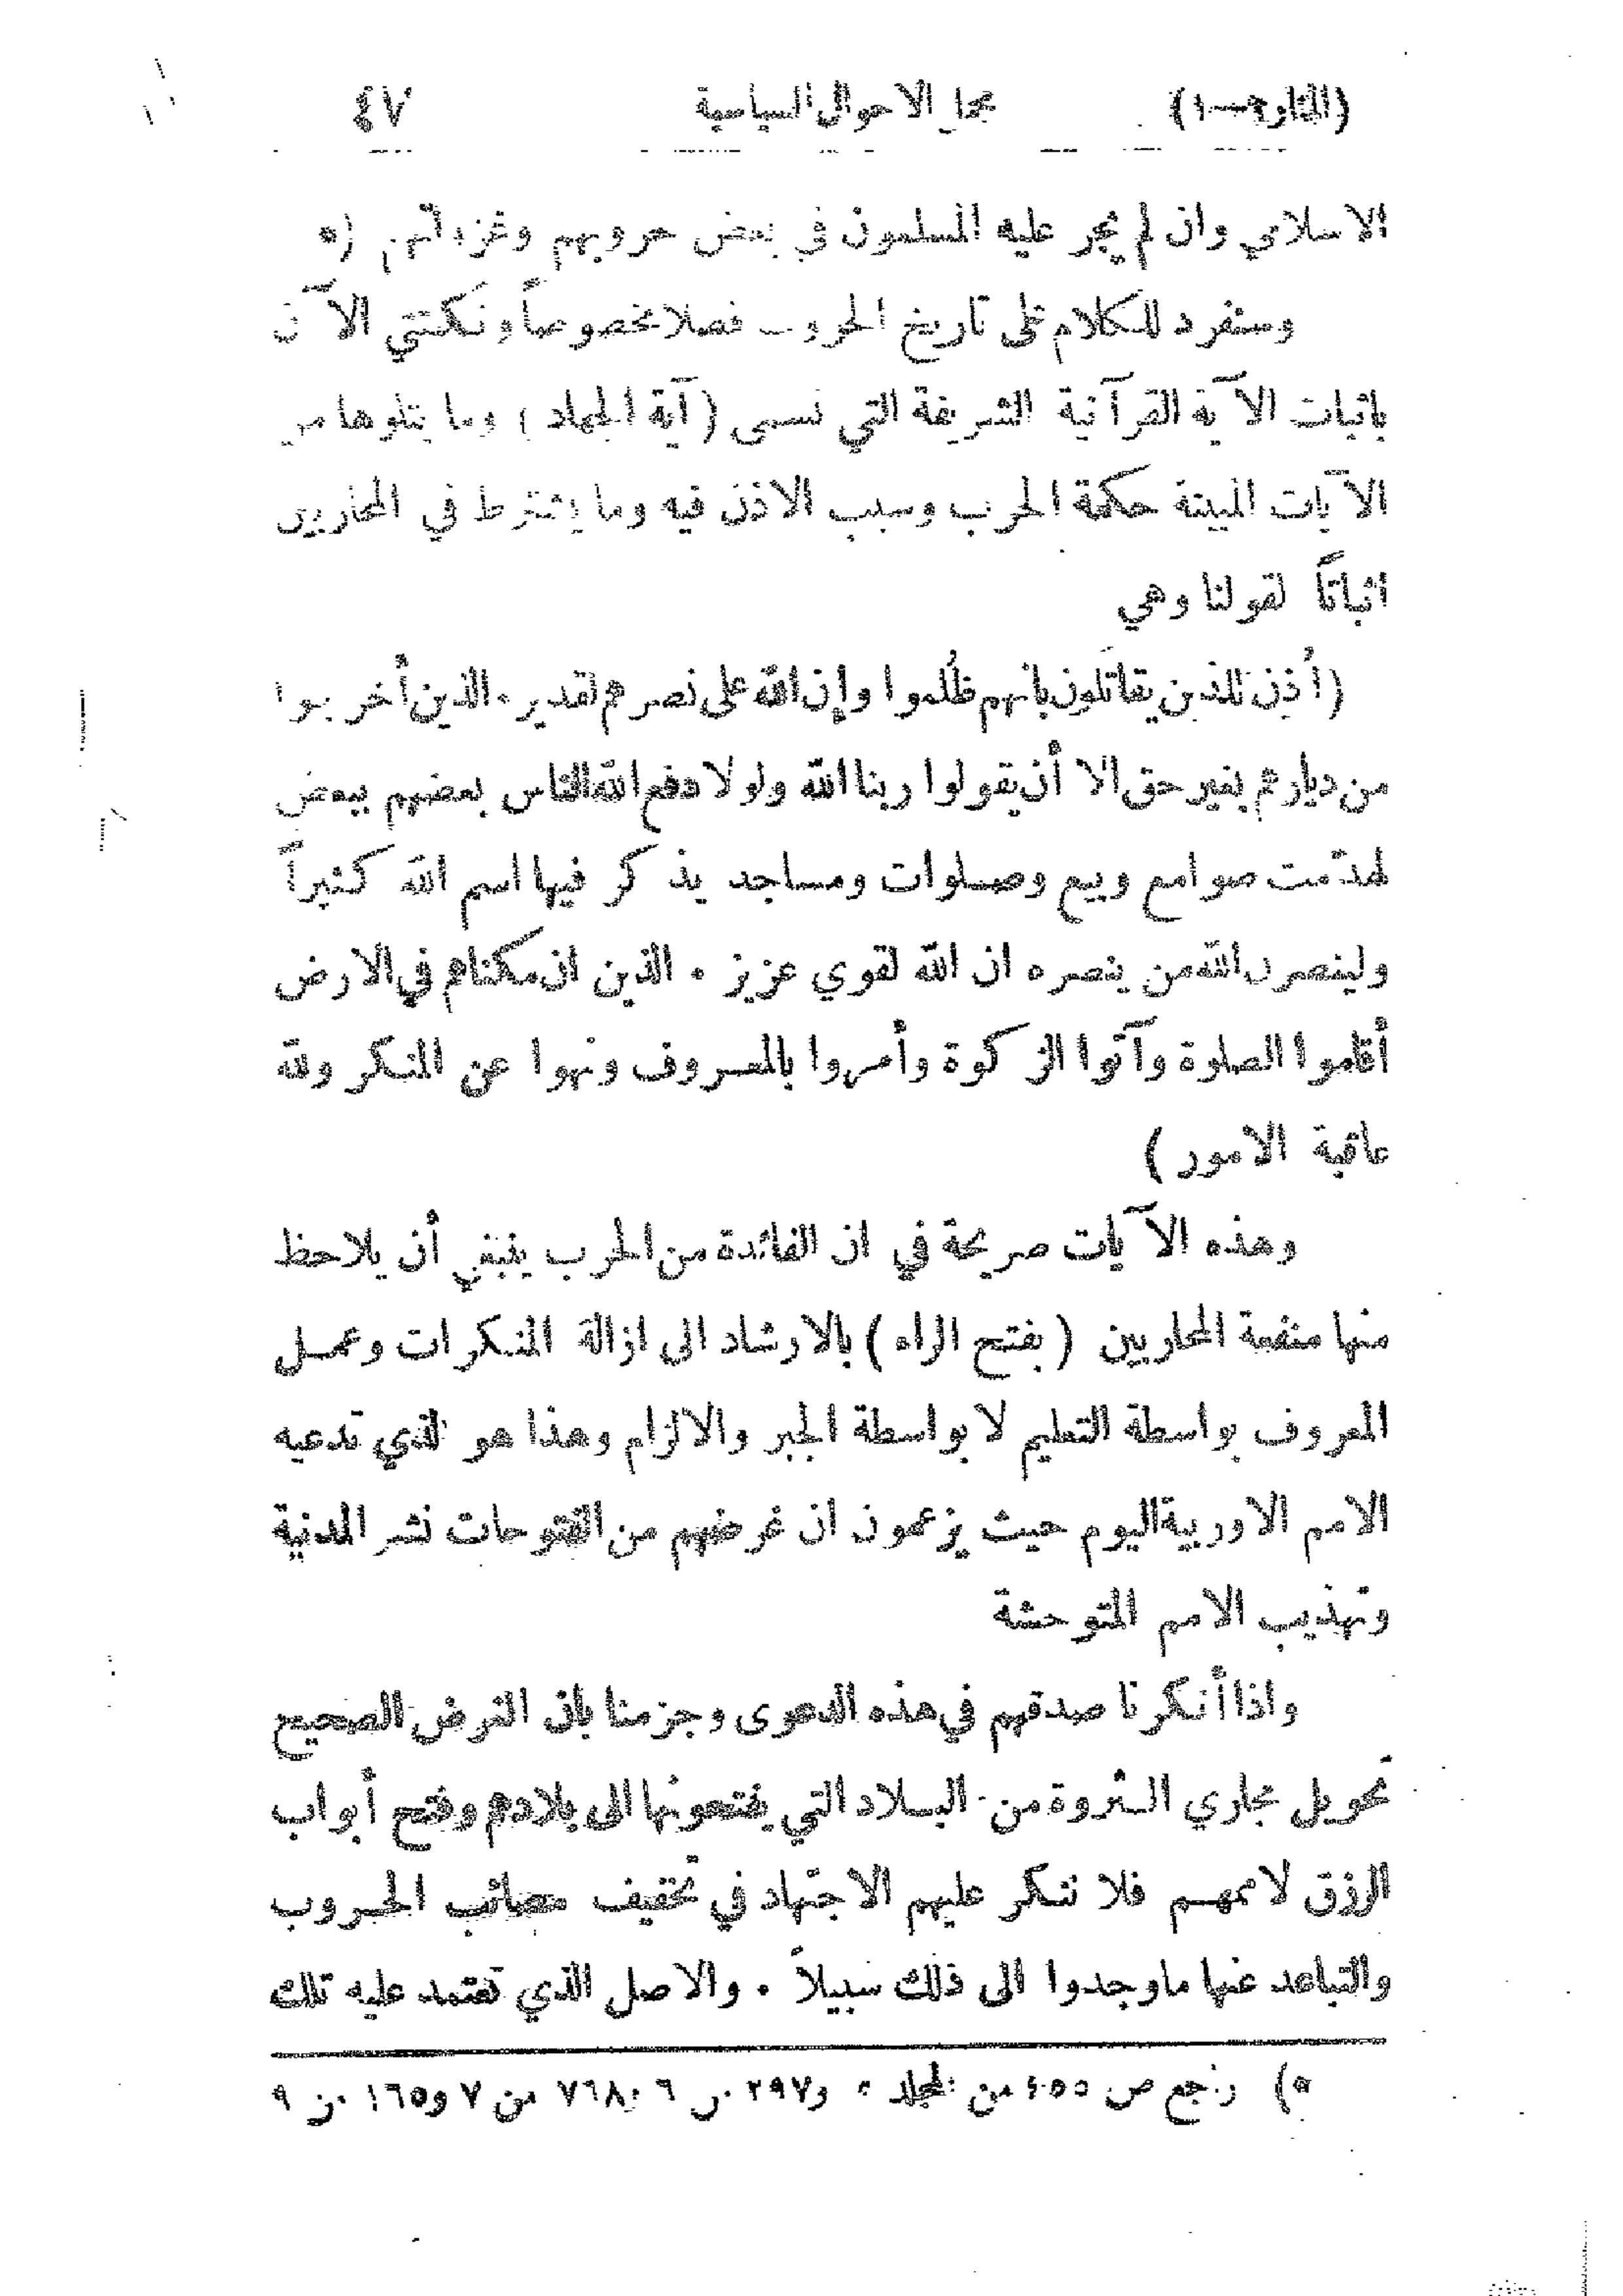 مجمل الاحوال السياسية ٤٧
الاسلامي وان لم يجر عليه المسلمون في بعض حروبهم وغزواتهم (٥
وسنفرد للكلام على تاريخ الحروب فصلا مخصوصاً ونكتفي الآن
باثبات الآية القرآنية الشريفة التي تسمى (آية الجهاد) وما يتلوها من
الآيات المبينة حكمة الحرب وسبب الاذن فيه وما يشترط في المحاربين
اثباتاً لقولنا وهي
(أُذِن للذين يقاتَلون بانهم ظُلموا وإن الله على نصرهم لقدير . الذين أخرجوا
من ديارهم بغير حق الا أن يقولوا ربنا الله ولولا دفع الله الناس بعضهم ببعض
لهدّمت صوامع وبيع وصلوات ومساجد يذكر فيها اسم الله كثيراً
ولينصرن الله من ينصره ان الله لقوي عزيز . الذين ان مكناهم في الارض
أقاموا الصلوة وآتوا الزكوة وأمروا بالمعروف ونهوا عن المنكر ولله
عاقبة الامور)
وهذه الآيات صريحة في ان الفائدة من الحرب ينبغي أن يلاحظ
منها منفعة المحاربين (بفتح الراء) بالارشاد الى ازالة المنكرات وعمل
المعروف بواسطة التعليم لا بواسطة الجبر والالزام وهذا هو الذي تدعيه
الامم الاوربية اليوم حيث يزعمون ان غرضهم من الفتوحات نشر المدنية
وتهذيب الامم المتوحشة
واذا أنكرنا صدقهم في هذه الدعوى وجزمنا بان الغرض الصحيح
تحويل مجاري الثروة من البلاد التي يفتحونها الى بلادهم وفتح أبواب
الرزق لاممهم فلا ننكر عليهم الاجتهاد في تخفيف مصائب الحروب
والتباعد عنها ما وجدوا الى ذلك سبيلاً . والاصل الذي تعتمد عليه تلك
٥) راجع ص من المجلد ٥ و٢٩٧ من ٦ و٧٦٨ من ٧ و١٦٥ من ٩